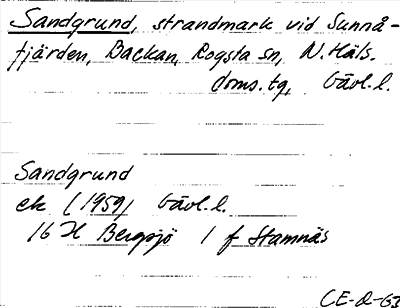 Sandgrund, strandmark vid Sunnå-
fjärden, Backan, Rogsta sn, N. Häls.
doms.tg, Gävl.l.
Sandgrund
ek (1959) Gävl.l.
16 H Bergsjö 1 f Stamnäs